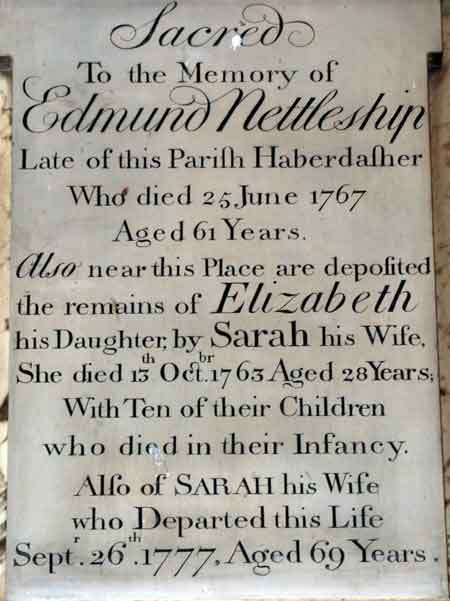 Sacred
To the Memory of
Edmund Nettleship
Late of this Pariſh Haberdaſher
Who died 25 June 1767
Aged 61 Years.
Alſo near this Place are depoſited
the remains of Elizabeth
his Daughter, by Sarah his Wife,
She died 13th Octbr. 1763 Aged 28 Years;
With Ten of their Children
who died in their Infancy.
Alſo of SARAH his Wife
who Departed this Life
Septr. 26th. 1777, Aged 69 Years.